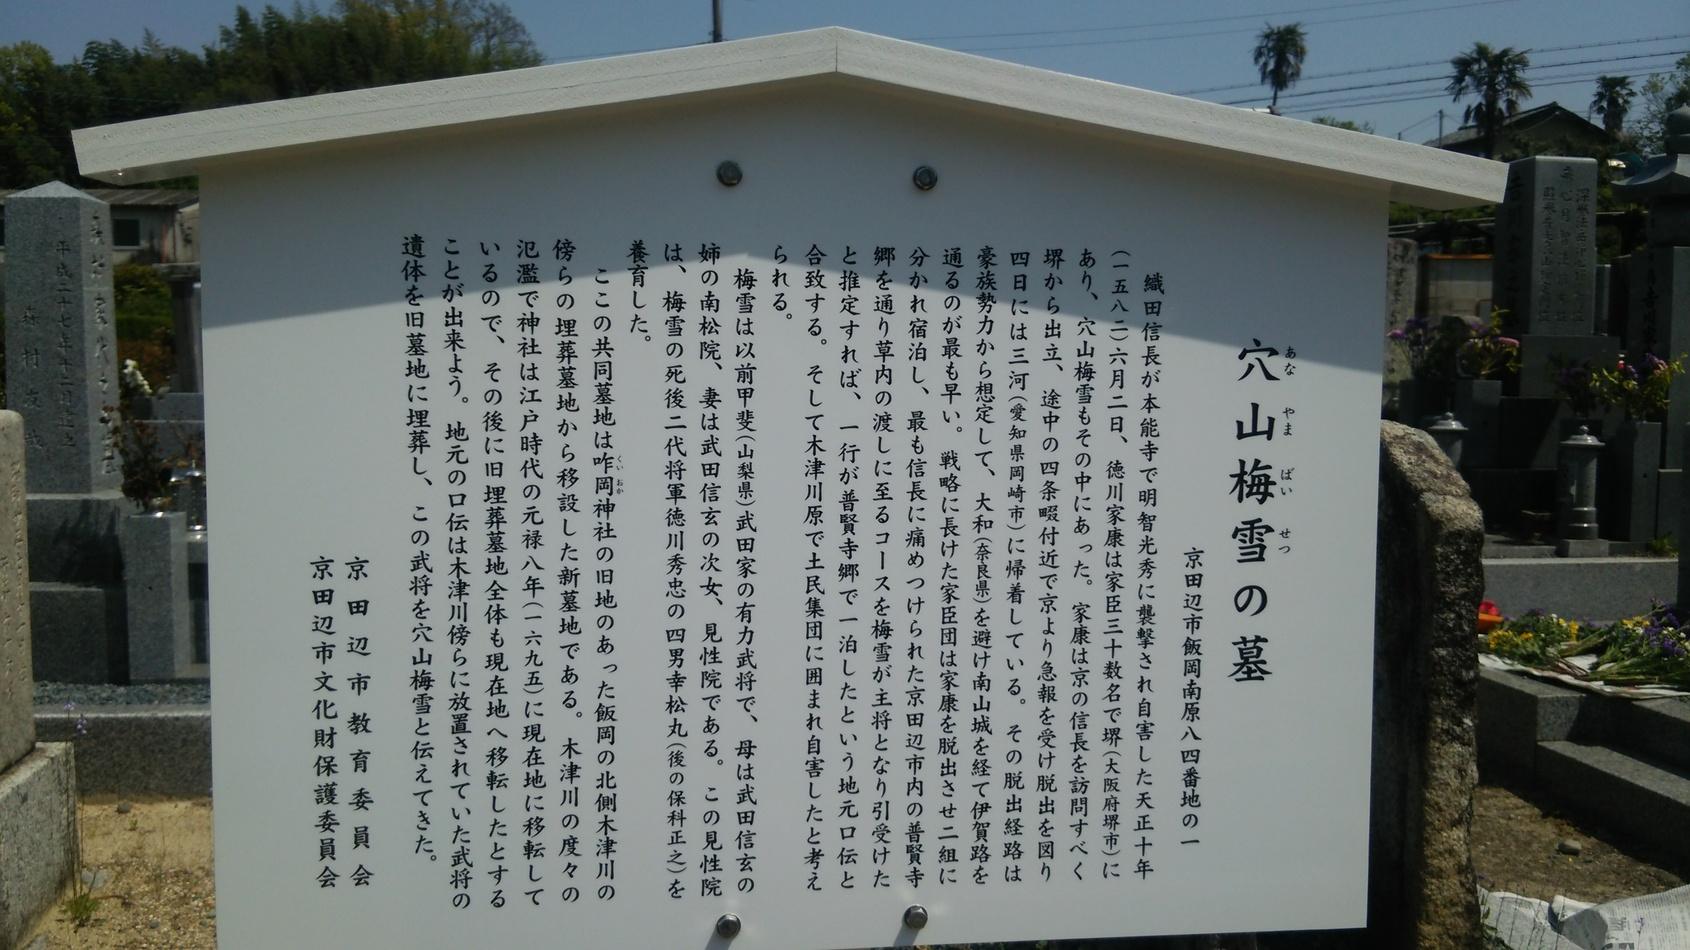 穴山梅雪の墓
あな やま ばい せつ
京田辺市飯岡南原八四番地の一
織田信長が本能寺で明智光秀に襲撃され自害した天正十年
(一五八二)六月二日、徳川家康は家臣三十数名で堺(大阪府堺市)に
あり、穴山梅雪もその中にあった。家康は京の信長を訪問すべく
堺から出立、途中の四条畷付近で京より急報を受け脱出を図り
四日には三河(愛知県岡崎市)に帰着している。その脱出経路は
豪族勢力から想定して、大和(奈良県)を避け南山城を経て伊賀路を
通るのが最も早い。戦略に長けた家臣団は家康を脱出させ二組に
分かれ宿泊し、最も信長に痛めつけられた京田辺市内の普賢寺
郷を通り草内の渡しに至るコースを梅雪が主将となり引受けた
と推定すれば、一行が普賢寺郷で一泊したという地元口伝と
合致する。そして木津川原で土民集団に囲まれ自害したと考え
られる。
梅雪は以前甲斐(山梨県)武田家の有力武将で、母は武田信玄の
姉の南松院、妻は武田信玄の次女、見性院である。この見性院
は、梅雪の死後二代将軍徳川秀忠の四男幸松丸(後の保科正之)を
養育した。
ここの共同墓地は咋岡神社の旧地のあった飯岡の北側木津川の
くい おか
傍らの埋葬墓地から移設した新墓地である。木津川の度々の
氾濫で神社は江戸時代の元禄八年(一六九五)に現在地に移転して
いるので、その後に旧埋葬墓地全体も現在地へ移転したとする
ことが出来よう。地元の口伝は木津川傍らに放置されていた武将の
遺体を旧墓地に埋葬し、この武将を穴山梅雪と伝えてきた。
京田辺市教育委員会
京田辺市文化財保護委員会